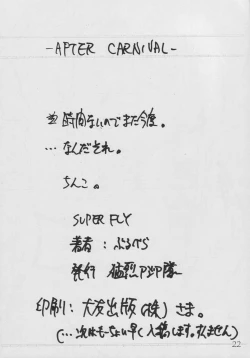 -AFTER CARNIVAL-
時間ないのでまた今度。
…なんだそれ。
ちんこ。
SUPER FLY
著者：ぶるべら
発行 猛烈P&P隊
印刷：大友出版(株)さま。
(…次はもーちょい早く入稿します。すんません)
22